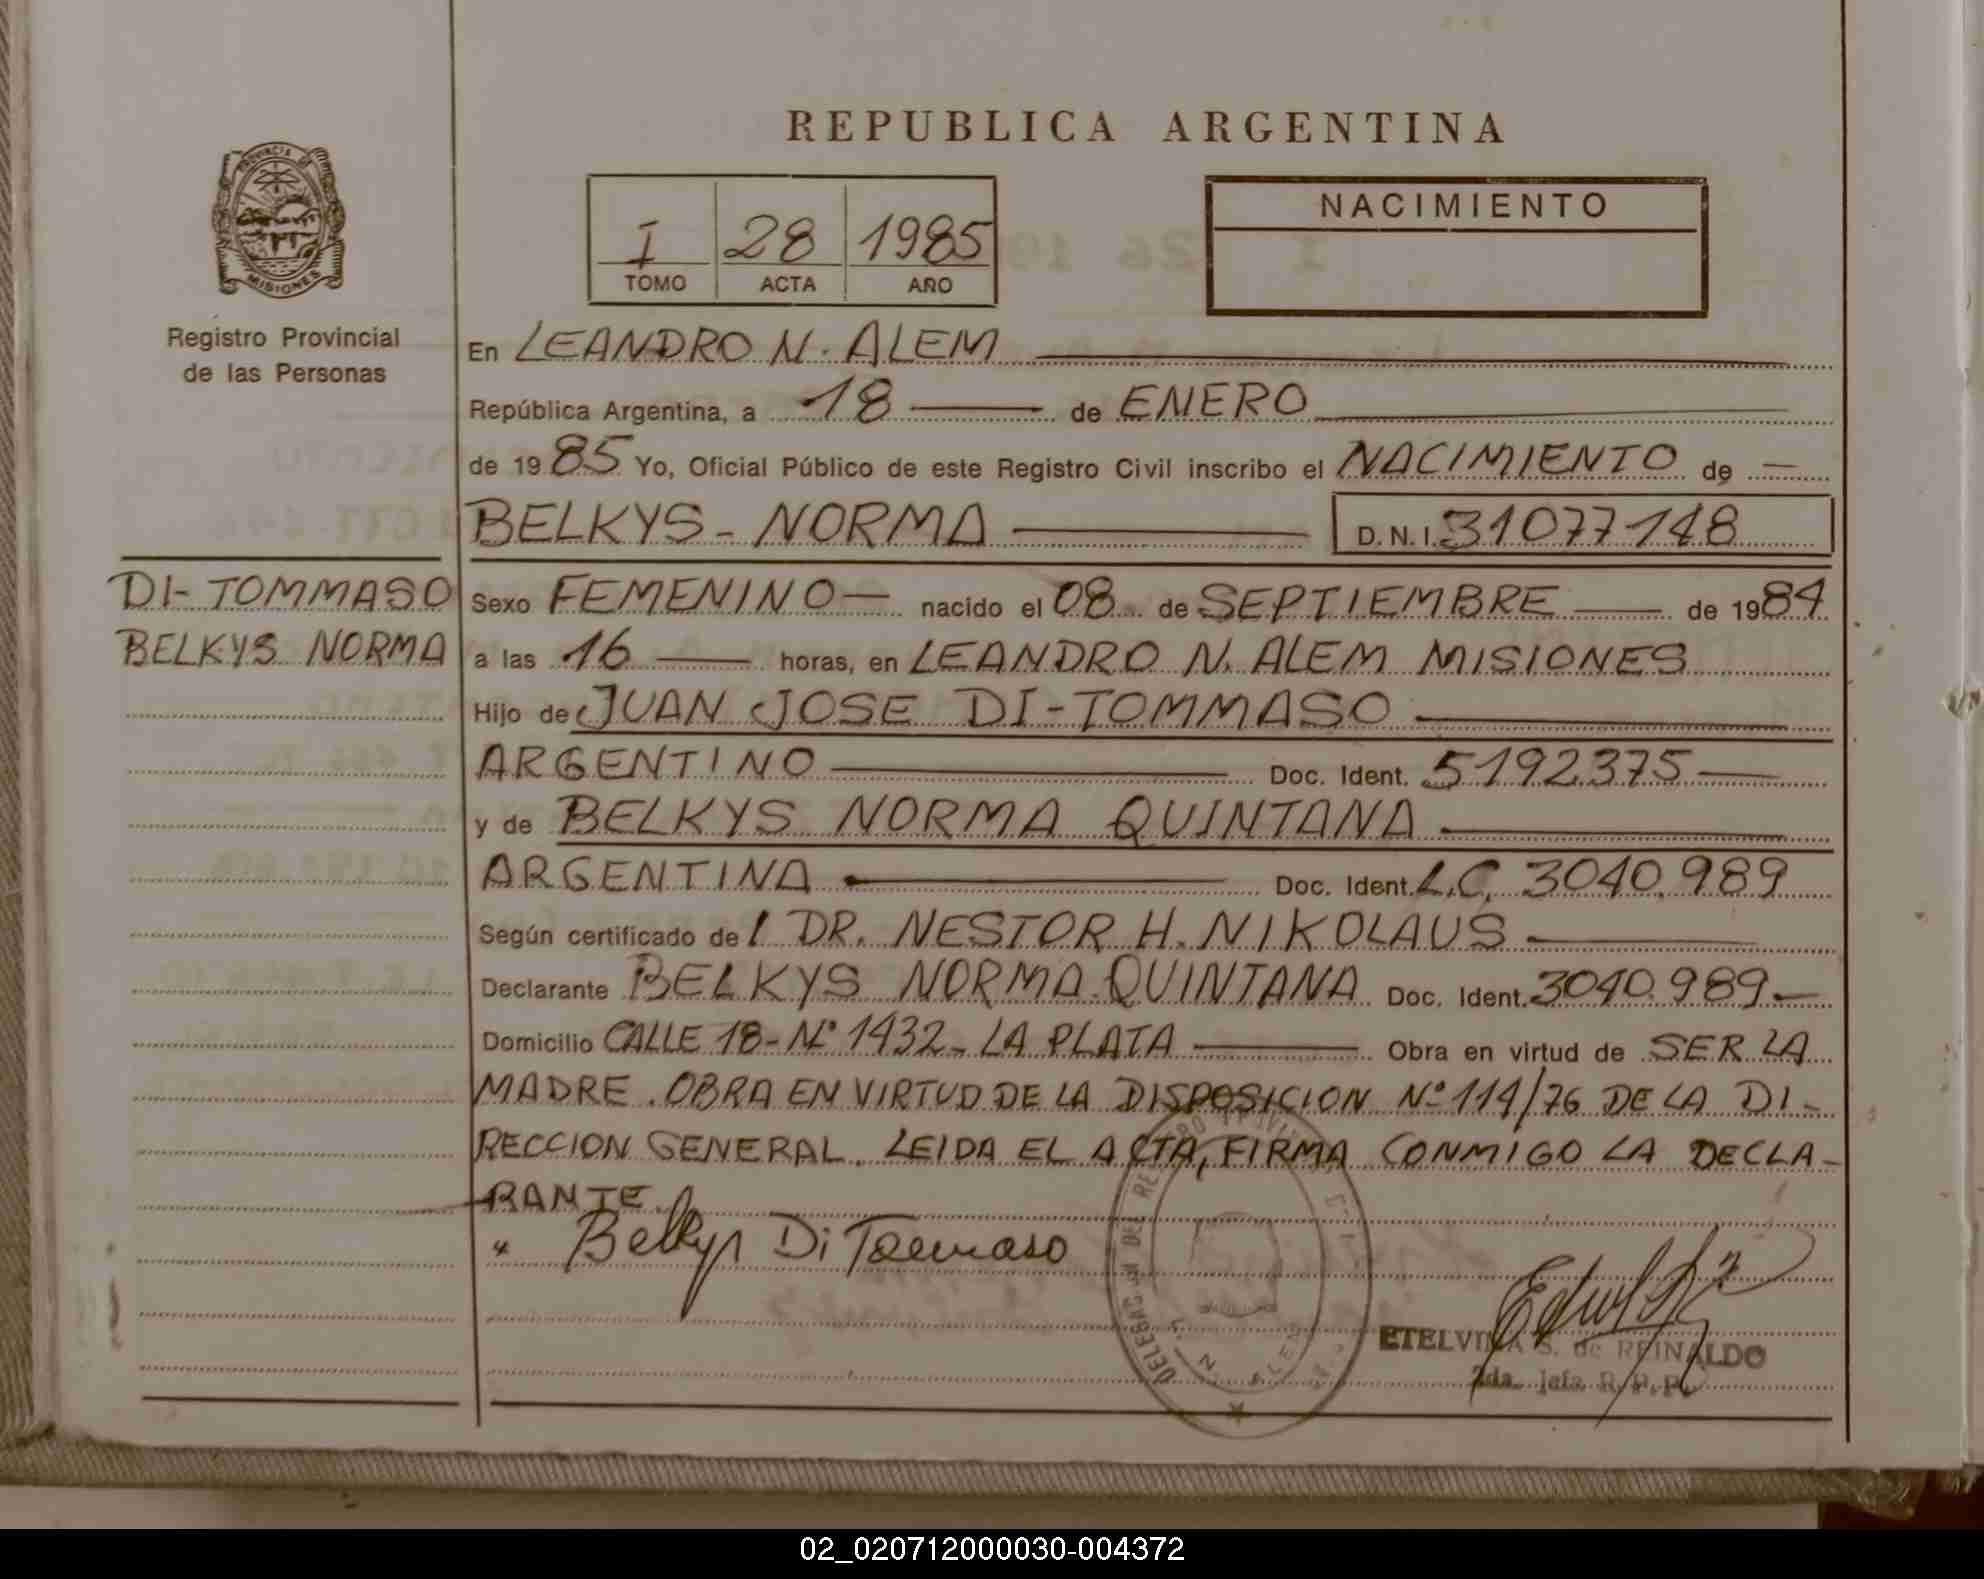 REPUBLICA ARGENTINA
PROVINCIA DE
MISIONES
Registro Provincial
de las Personas
I 28 1985
TOMO ACTA AÑO
NACIMIENTO
En LEANDRO N. ALEM
República Argentina, a 18 de ENERO
de 1985 Yo, Oficial Público de este Registro Civil inscribo el NACIMIENTO de
BELKYS - NORMA D.N.I. 31077148
DI-TOMMASO
BELKYS NORMA
Sexo FEMENINO nacido el 08 de SEPTIEMBRE de 1984
a las 16 horas, en LEANDRO N. ALEM MISIONES
Hijo de JUAN JOSE DI-TOMMASO
ARGENTINO Doc. Ident. 5192375
y de BELKYS NORMA QUINTANA
ARGENTINA Doc. Ident. L.C. 3040.989
Según certificado del DR. NESTOR H. NIKOLAUS
Declarante BELKYS NORMA QUINTANA Doc. Ident. 3040.989
Domicilio CALLE 18-Nº 1432- LA PLATA Obra en virtud de SER LA
MADRE. OBRA EN VIRTUD DE LA DISPOSICION Nº 114/76 DE LA DI-
RECCION GENERAL. LEIDA EL ACTA, FIRMA CONMIGO LA DECLA-
RANTE.
Belkys Di Tommaso
ETELVINA S. de REINALDO
2da. Jefa R.P.P.
02_020712000030-004372